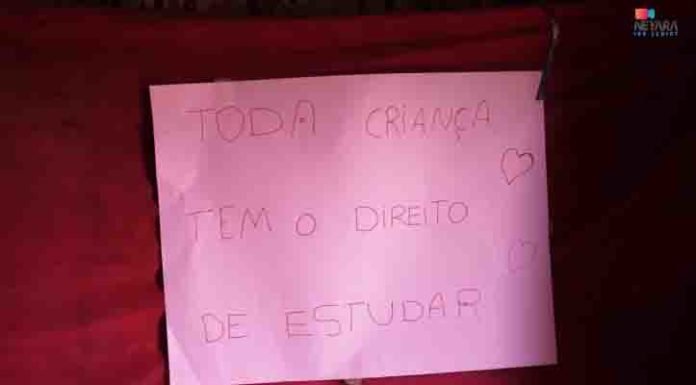 NEYARA
TODA CRIANÇA
TEM O DIREITO
DE ESTUDAR